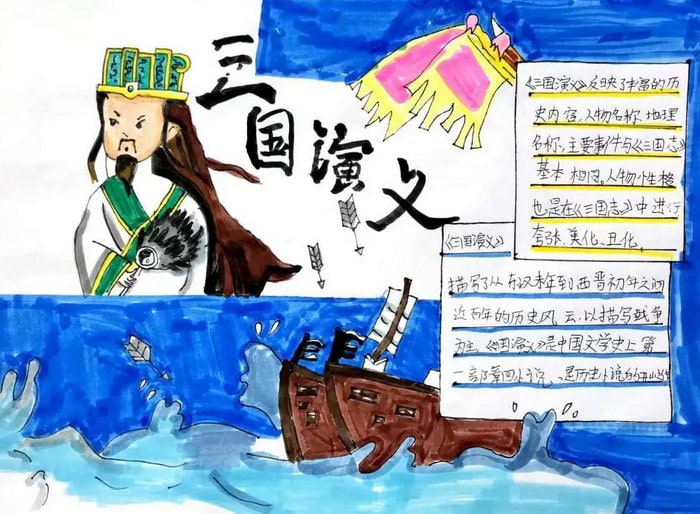 三国演义
《三国演义》反映了丰富的历
史内容,人物名称、地理
名称、主要事件与《三国志》
基本相同。人物性格
也是在《三国志》中进行
夸张、美化、丑化、
《三国演义》
描写了从东汉末年到西晋初年之间
近百年的历史风云.以描写战争
为主,《三国演义》是中国文学史上第
一部章回小说、是历史小说的开山